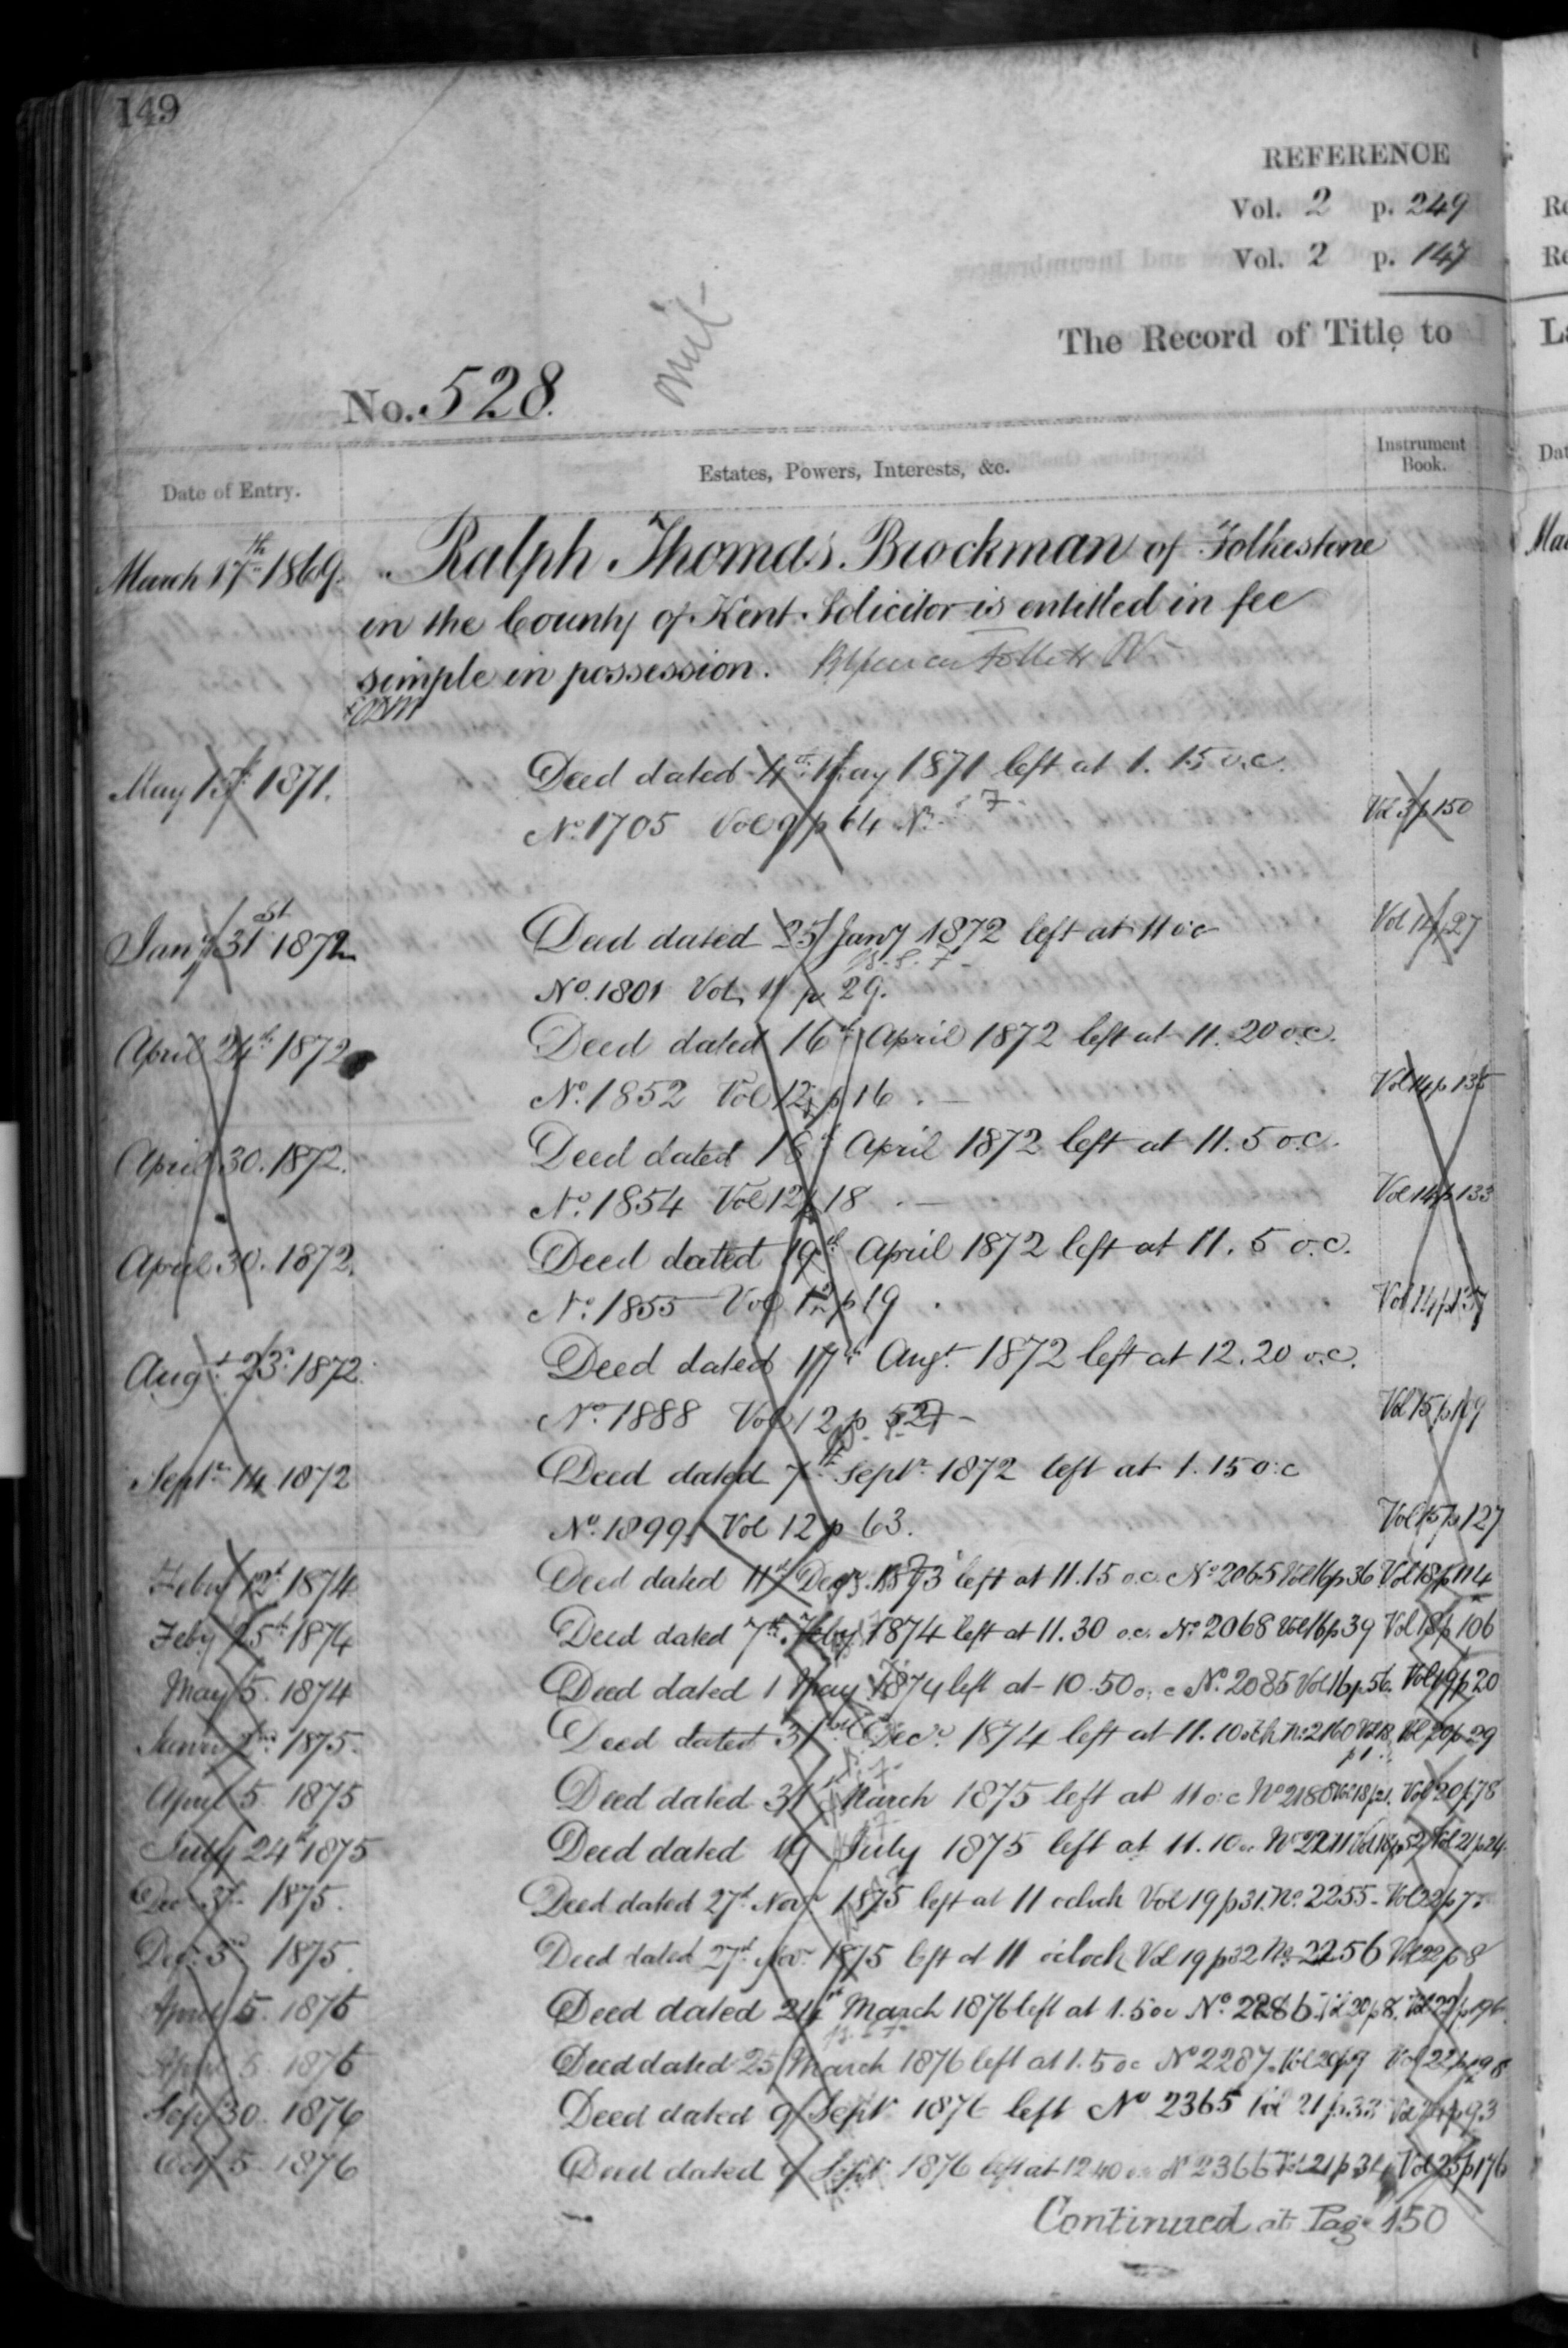 149
REFERENCE
Vol. 2 p. 249
Vol. 2 p. 147
The Record of Title to
omit
No. 528.
Date of Entry. Estates, Powers, Interests, &c. Instrument Book.
March 17th 1869. Ralph Thomas Brockman of Folkestone
in the County of Kent Solicitor is entitled in fee
simple in possession.
May 15th 1871. Deed dated 4th May 1871 left at 1.15 o.c.
No. 1705 Vol 9 p 64 Vol 3 p 150
Jany 31st 1872 Deed dated 25 Jany 1872 left at 11 o.c Vol 14 p 27
No. 1801 Vol. 11 p 29.
April 24th 1872 Deed dated 16th April 1872 left at 11.20 o.c.
No. 1852 Vol 12 p 16. Vol 14 p 135
April 30. 1872. Deed dated 18th April 1872 left at 11.5 o.c.
No. 1854 Vol 12 p 18 Vol 14 p 133
April 30. 1872. Deed dated 19th April 1872 left at 11.5 o.c.
No. 1855 Vol 12 p 19 Vol 14 p 137
Augt 23d 1872. Deed dated 17th Augt. 1872 left at 12.20 o.c.
No. 1888 Vol 12 p 52 Vol 15 p 119
Septr 14 1872 Deed dated 7th Septr. 1872 left at 1.15 o.c
No. 1899 Vol 12 p 63. Vol 15 p 127
Feby 12th 1874 Deed dated 11th Decr. 1873 left at 11.15 o.c. No 2065 Vol 16 p 36 Vol 18 p 114
Feby 25th 1874 Deed dated 7th Feby 1874 left at 11.30 o.c. No 2068 Vol 16 p 39 Vol 18 p 106
May 5. 1874 Deed dated 1 May 1874 left at 10.50 o.c No. 2085 Vol 16 p 56. Vol 19 p 20
1875. Deed dated 31st Decr. 1874 left at 11.10 No. 2160 Vol 18 p 1 Vol 20 p 29
April 5 1875 Deed dated 31st March 1875 left at 11 o.c No 2180 Vol 18 p 21. Vol 20 p 78
July 24th 1875 Deed dated 19 July 1875 left at 11.10 No 2211 Vol 18 p 52 Vol 21 p 24
Dec 3d 1875. Deed dated 27th Novr 1875 left at 11 oclock Vol 19 p 31. No. 2255 - Vol 22 p 7
Dec. 3d 1875. Deed dated 27th Nov. 1875 left at 11 oclock Vol 19 p 32 No 2256 Vol 22 p 8
April 5. 1876 Deed dated 24th March 1876 left at 1.5 oc No. 2286 Vol 20 p 8. Vol 22 p 196
April 5 1876 Deed dated 25 March 1876 left at 1.5 oc No 2287. Vol 20 p 9 Vol 22 p 198
Sep 30 1876 Deed dated 9 Septr 1876 left No 2365 Vol 21 p 33 Vol 24 p 93
Oct 5 1876 Deed dated 9 Septr 1876 left at 12 40 No 2366 Vol 21 p 34 Vol 25 p 176
Continued at Page 150